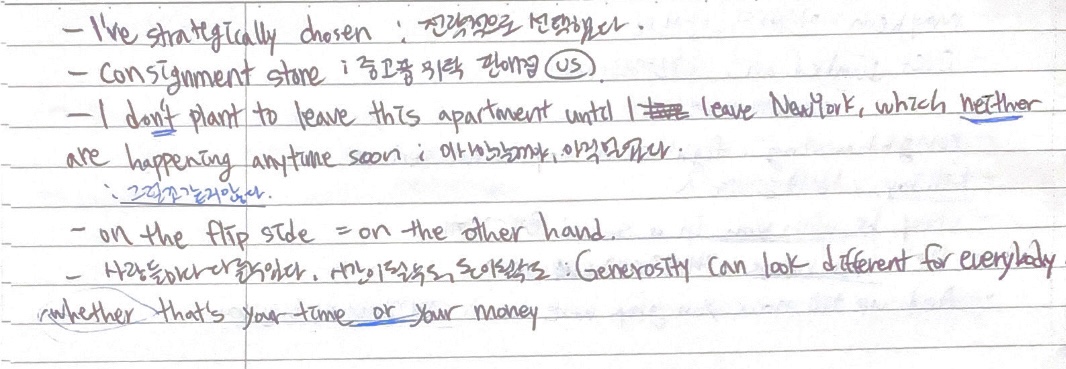 - I've strategically chosen : 전략적으로 선택했다.
- Consignment store : 중고품 위탁 판매점 (US)
- I don't plant to leave this apartment until I leave NewYork, which neither
are happening anytime soon :
:
- on the flip side = on the other hand.
- 사람들마다 다를수있다. 시간이 될수도, 돈이 될수도 : Generosity can look different for everybody
whether that's your time or your money